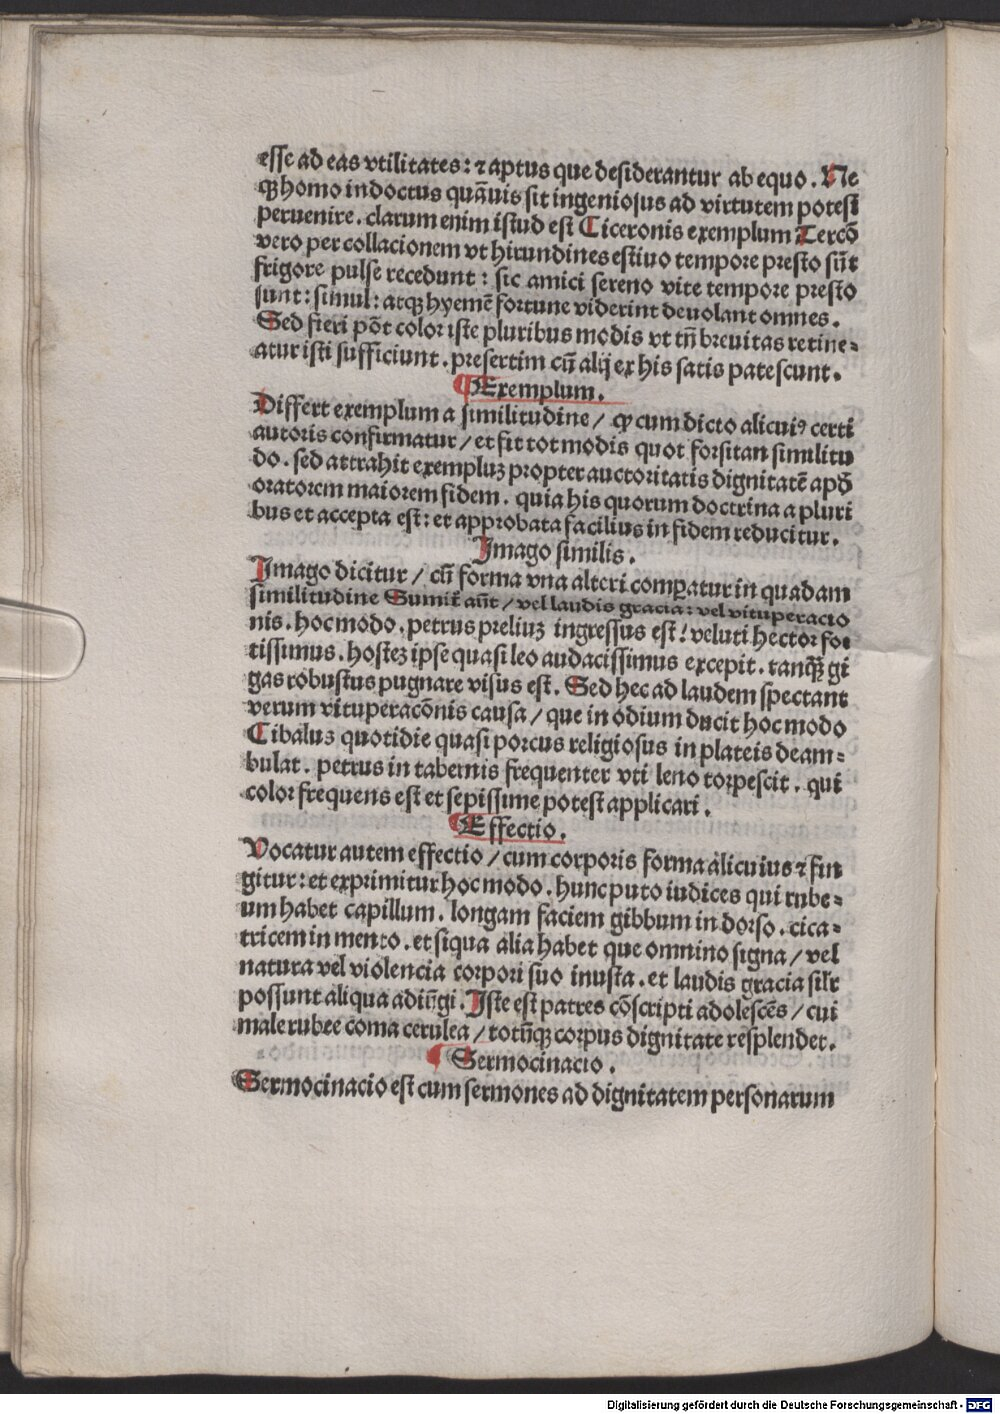 esse ad eas vtilitates: ⁊ aptus que desiderantur ab equo. Ne
qꝫ homo indoctus quãuis sit ingeniosus ad virtutem potest
peruenire. clarum enim istud est Ciceronis exemplum Tercõ
vero per collacionem vt hirundines estiuo tempore presto sũt
frigore pulse recedunt: sic amici sereno vite tempore presto
sunt: simul: atqꝫ hyemẽ fortune viderint deuolant omnes.
Sed fieri põt color iste pluribus modis vt tñ breuitas retine-
atur isti sufficiunt. presertim cũ aliq̃ ex his satis patescunt.
Exemplum.
Differt exemplum a similitudine / qꝫ cum dicto alicuiꝰ certi
autoris confirmatur / et fit tot modis quot forsitan similitu
do. sed attrahit exempluꝫ propter auctoritatis dignitatẽ apđ
oratorem maiorem fidem. quia his quorum doctrina a pluri
bus et accepta est: et approbata facilius in fidem reducitur.
Imago similis.
Imago dicitur / cũ forma vna alteri comꝑatur in quadam
similitudine Sumit̃ aũt / vel laudis gracia: vel vituperacio
nis. hoc modo. petrus preliuꝫ ingressus est: veluti hector for
tissimus. hosteꝫ ipse quasi leo audacissimus excepit. tanqꝫ gi
gas robustus pugnare visus est. Sed hec ad laudem spectant
verum vituperacõnis causa / que in odium ducit hoc modo
Cibaluꝫ quotidie quasi porcus religiosus in plateis deam-
bulat. petrus in tabernis frequenter vti leno torpescit. qui
color frequens est et sepissime potest applicari.
Effectio.
Vocatur autem effectio / cum corporis forma alicuius ⁊ fin
gitur: et exprimitur hoc modo. hunc puto iudices qui rube-
um habet capillum. longam faciem gibbum in dorso. cica-
tricem in mento. et siqua alia habet que omnino signa / vel
natura vel violencia corpori suo inusta. et laudis gracia silr
possunt aliqua adiũgi. Iste est patres cõscripti adolescẽs / cui
male rubee coma cerulea / totũqꝫ corpus dignitate resplendet.
Sermocinacio.
Sermocinacio est cum sermones ad dignitatem personarum
Digitalisierung gefördert durch die Deutsche Forschungsgemeinschaft - DFG